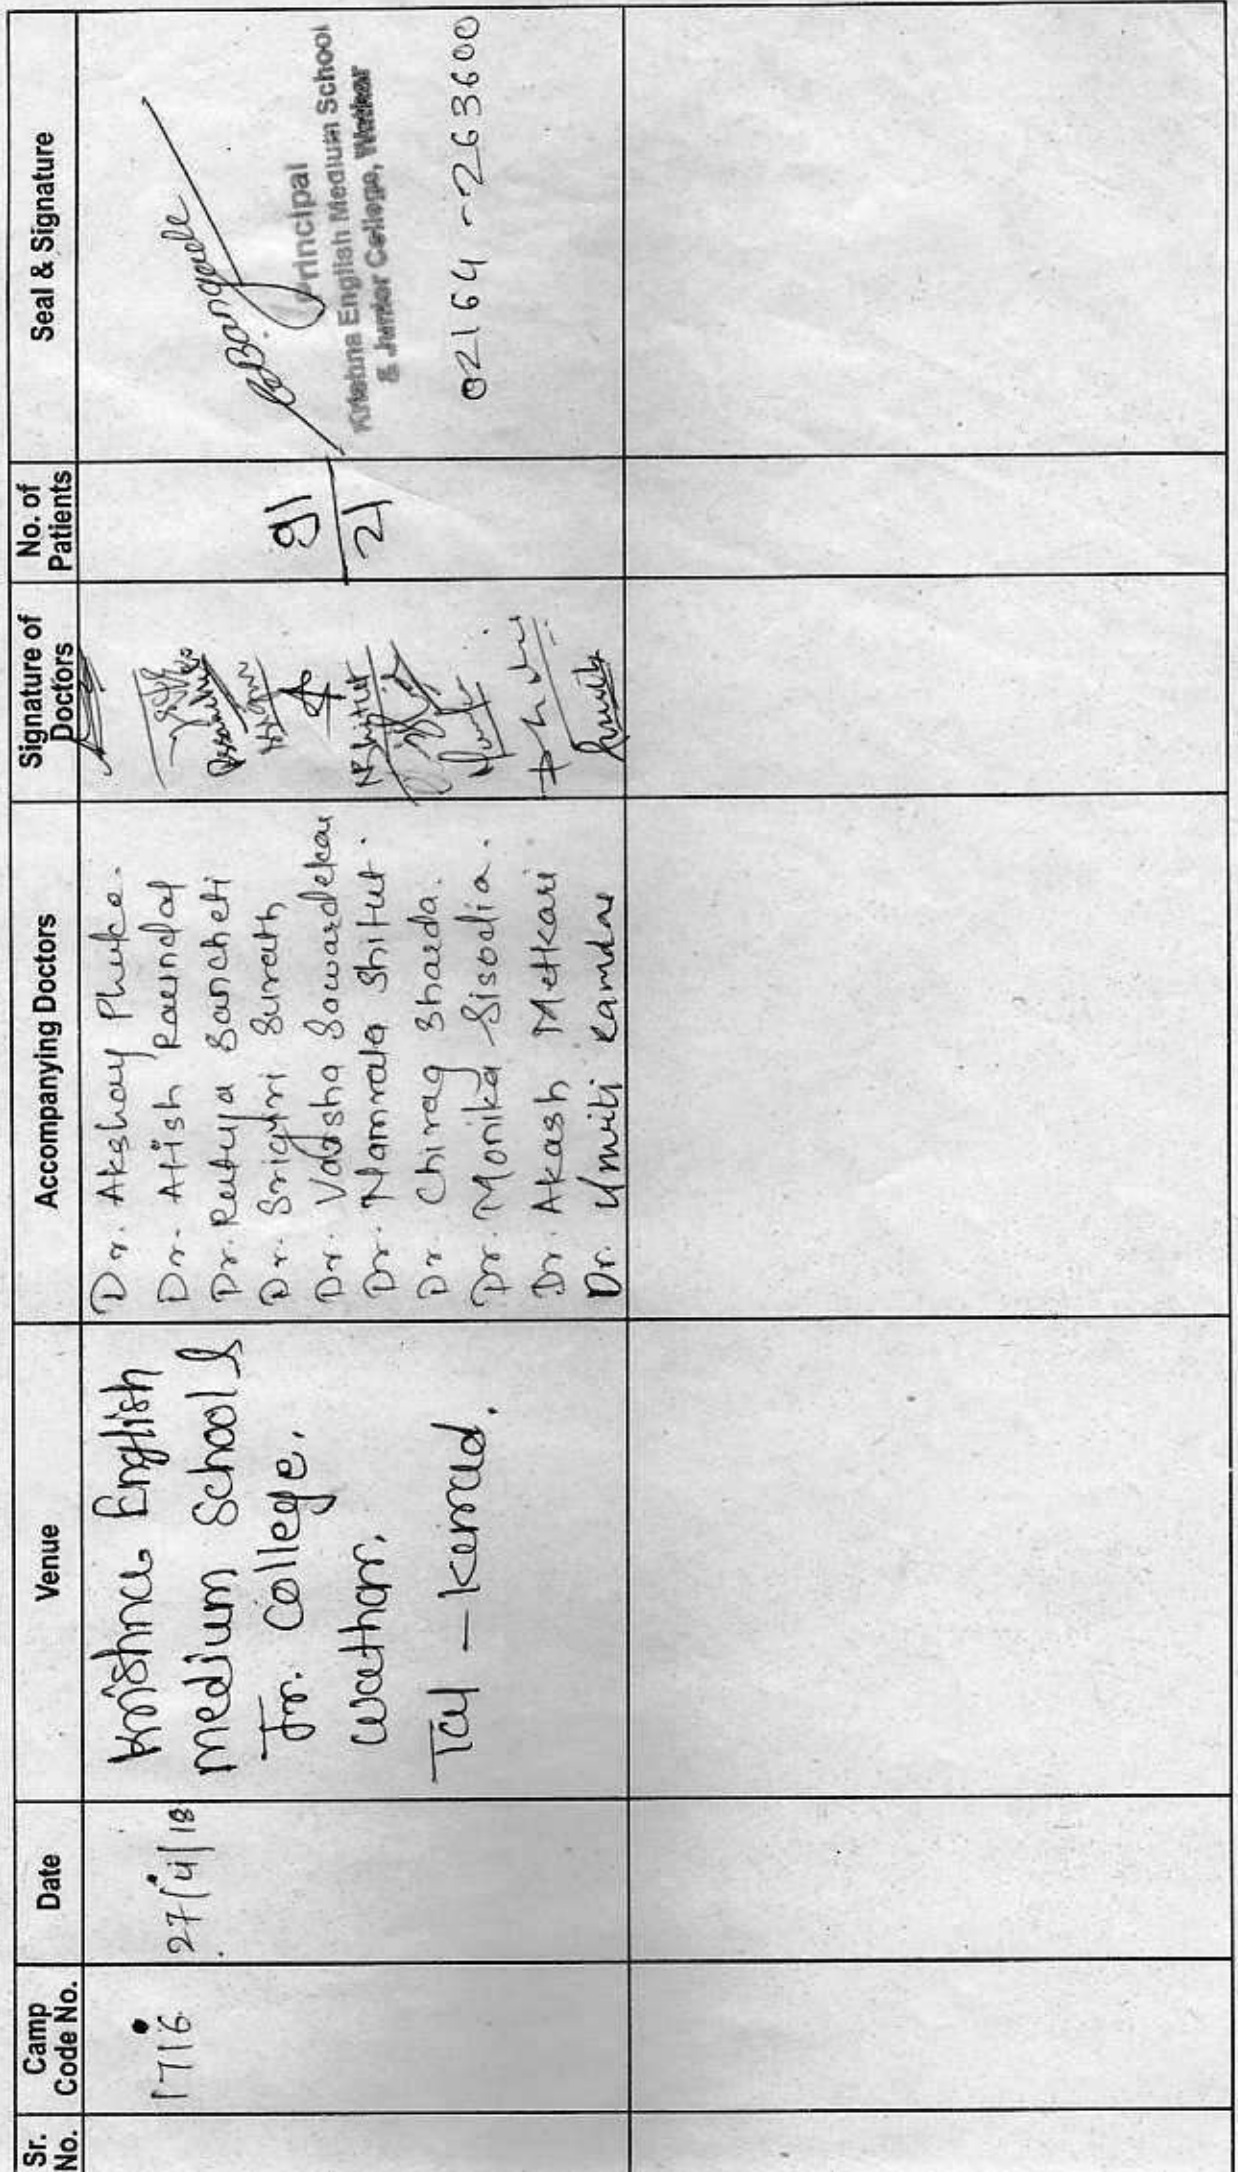 Sr.
No.
Camp
Code No.
Date
Venue
Accompanying Doctors
Signature of
Doctors
No. of
Patients
Seal & Signature
1716
27/4/18
Krishna English
medium School &
Jr. College.
Wathar.
Tal - Karad.
Dr. Akshay Phuke.
Dr. Atish Raundal
Dr. Rutuja Sancheti
Dr. Srigiri Surath
Dr. Varsha Sawardekar
Dr. Namrata Shitut.
Dr. Chirag Sharda.
Dr. Monika Sisodia.
Dr. Akash Metkari
Dr. Urviti Kamdar
NRShitut
91
21
Principal
Krishna English Medium School
& Junior College, Wathar
02164-263600